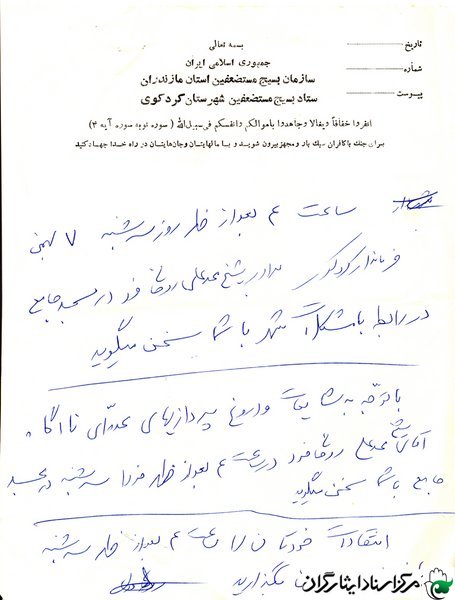 بسمه تعالی
جمهوری اسلامی ایران
سازمان بسیج مستضعفین استان مازندران
ستاد بسیج مستضعفین شهرستان کردکوی
تاریخ
شماره
پیوست
انفروا خفافاً وثقالا وجاهدوا باموالکم وانفسکم فی سبیل‌الله ( سوره توبه سوره آیه ۴۱)
برای جنگ باکافران سبک بار و مجهز بیرون شوید و بـا مالهایتان وجان‌هایتان در راه خدا جهـاد کنید
ساعت ۴ بعداز ظهر روز سه شنبه ۷ بهمن
فرماندار کردکوی برادر شیخ محمد علی روحانی فرد در مسجد جامع
در رابطه با مشکلات شهر با شما سخن میگوید
با توجه به شایعات و دروغ پردازیهای عده‌ای ناآگاه
آقای شیخ محمد علی روحانی فرد در ساعت ۴ بعداز ظهر فردا سه شنبه در مسجد
جامع با شما سخن میگوید
انتقادات خودتان را ساعت ۴ بعداز ظهر سه شنبه
بگذارید
مرکز اسناد ایثارگران